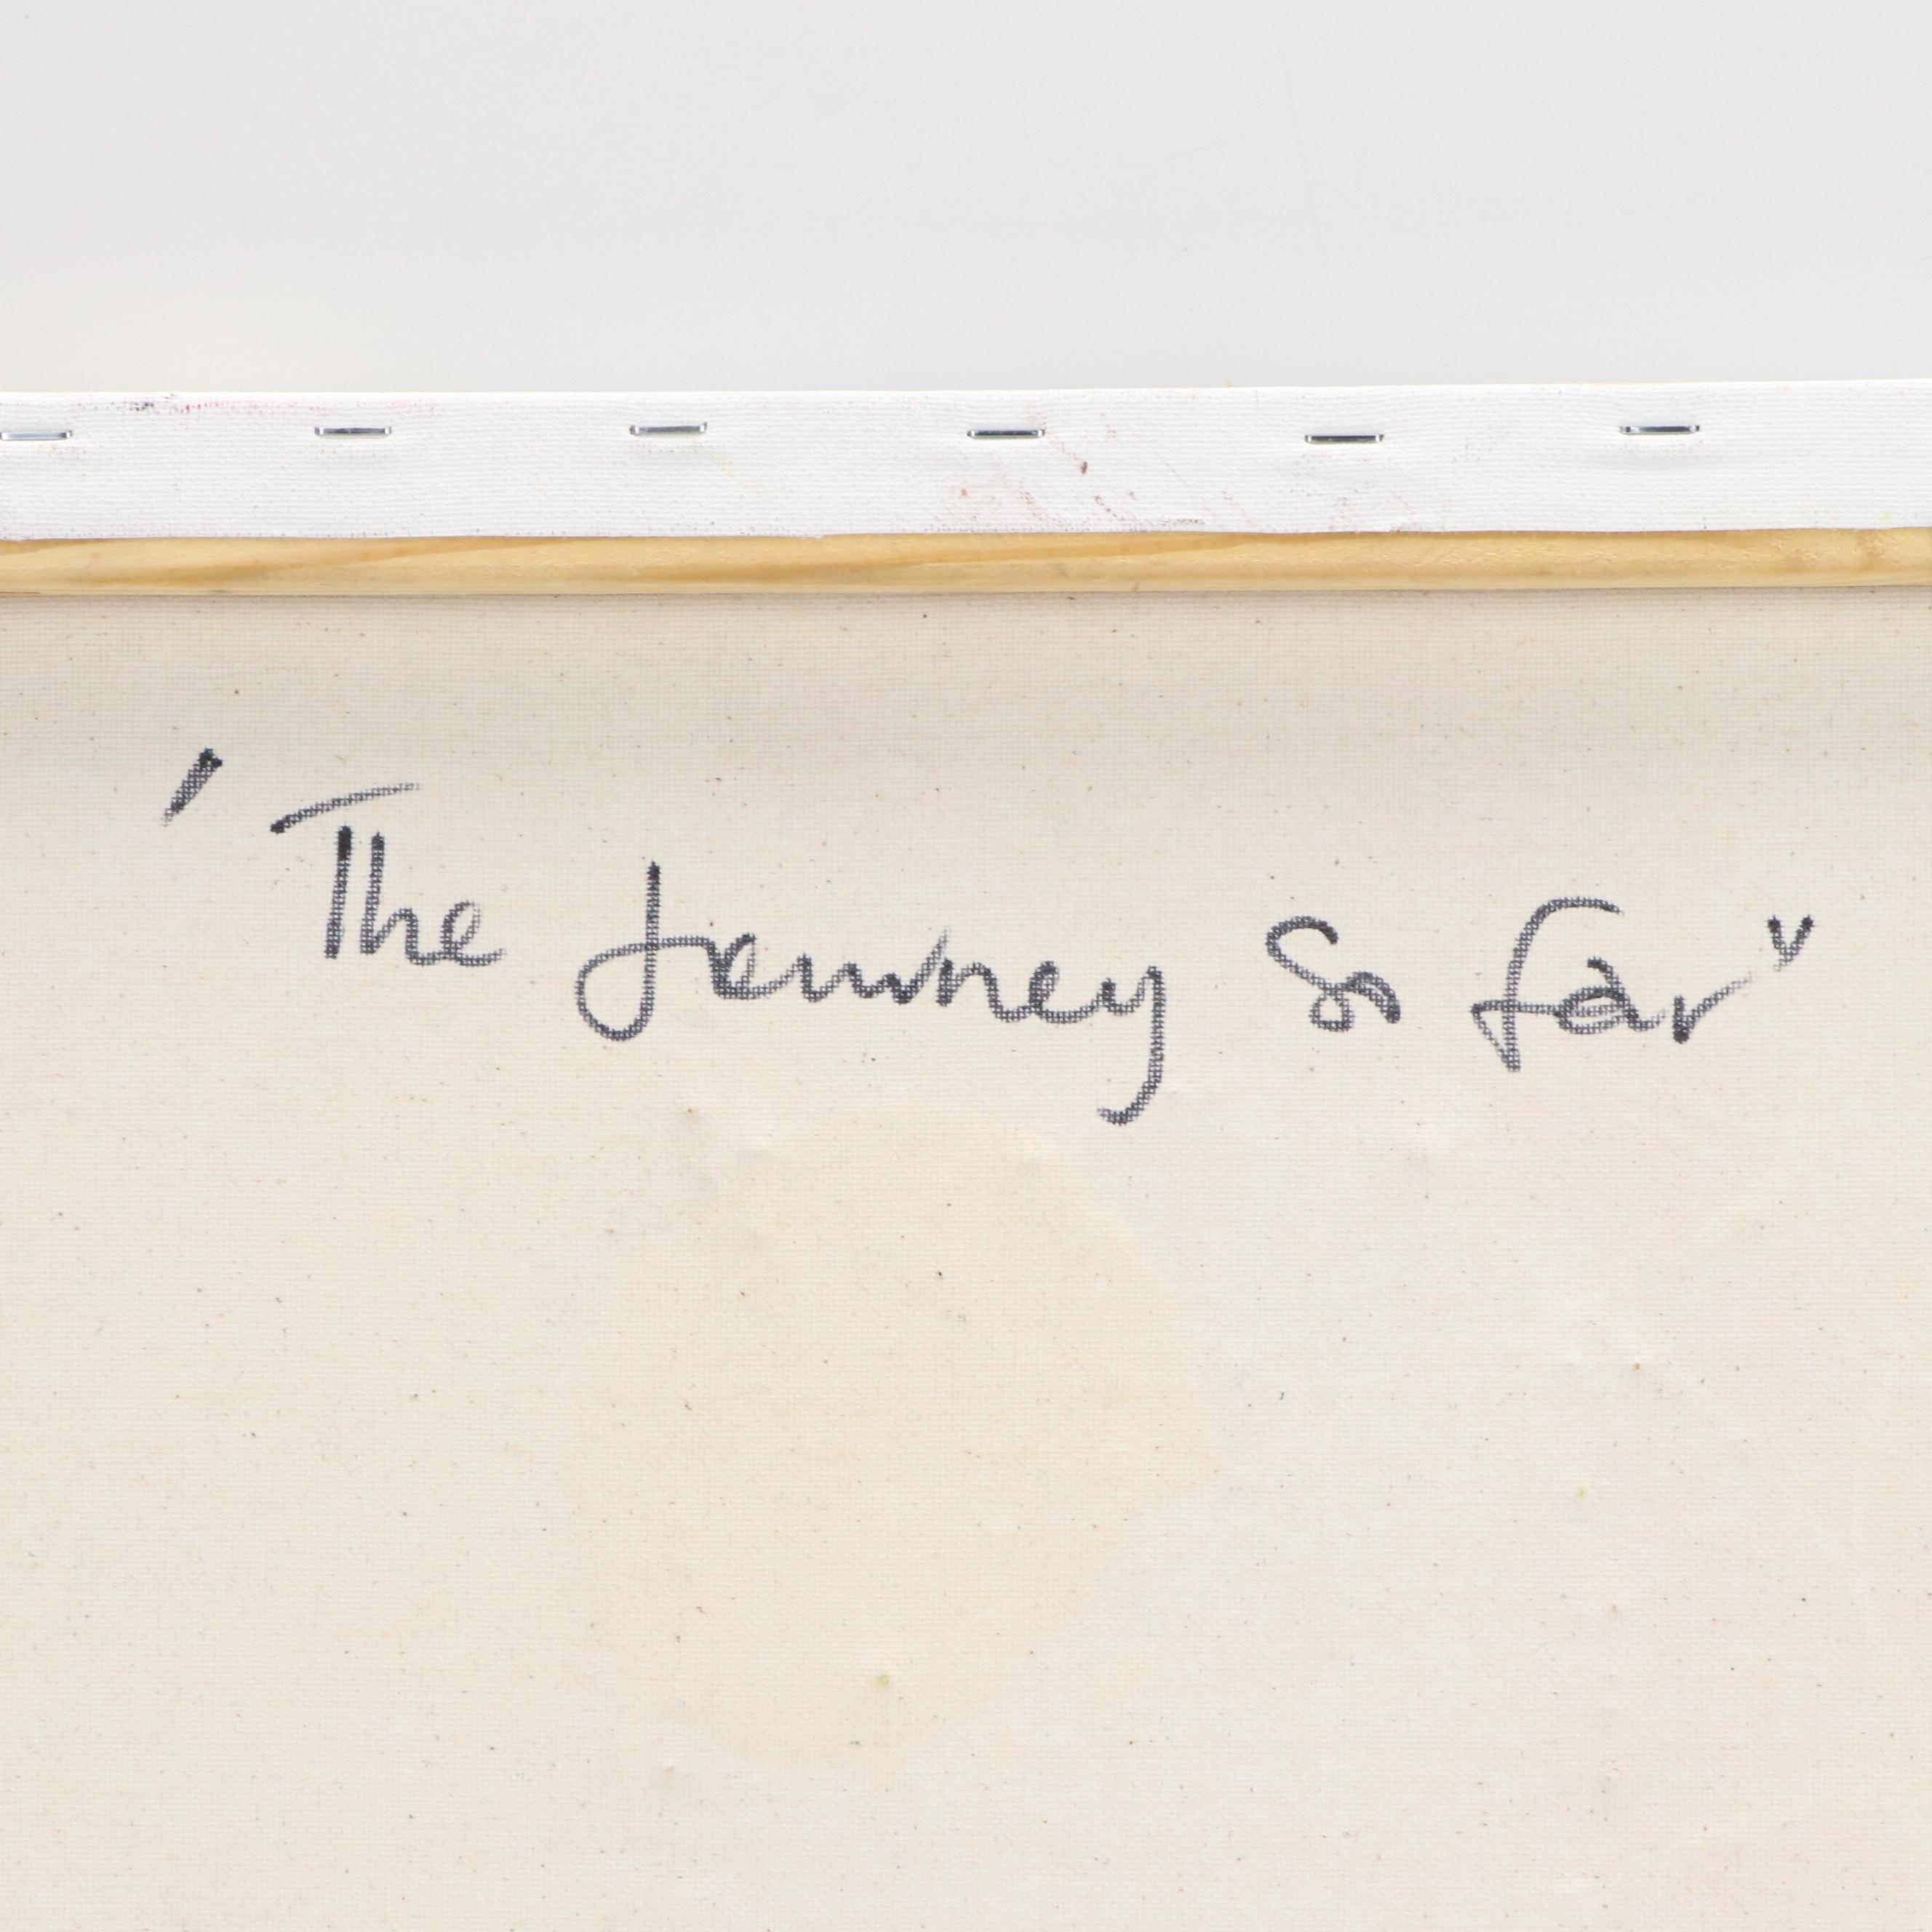 'The Journey So Far"